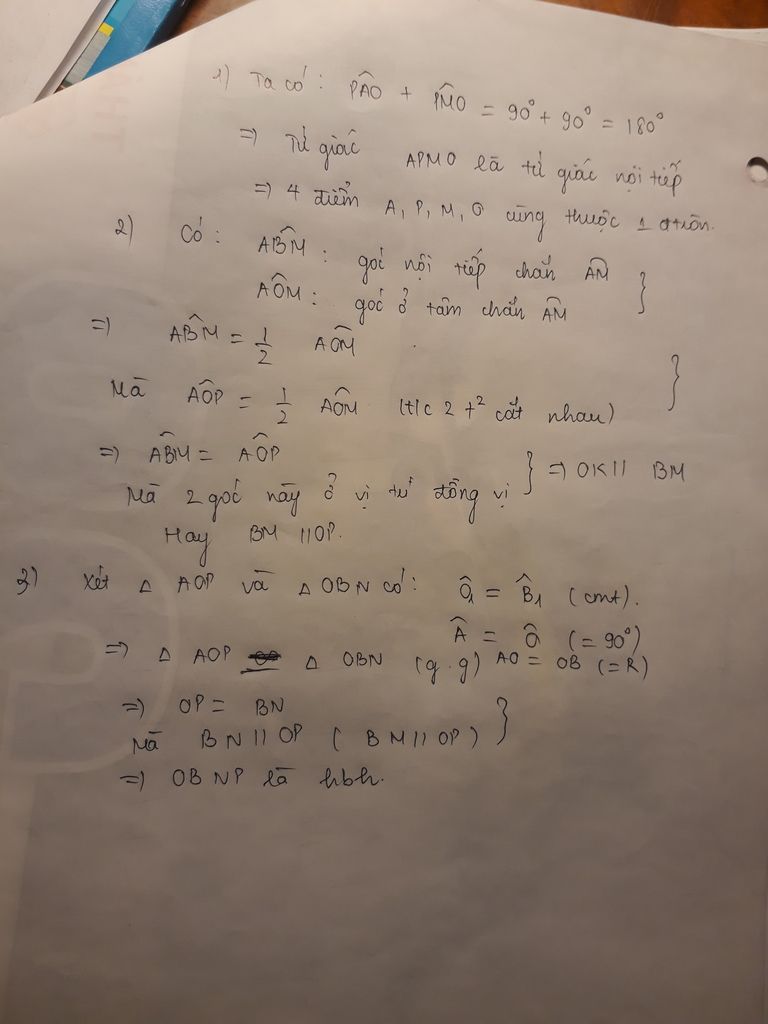 1) Ta có: PÂO + PM̂O = 90° + 90° = 180°
=> Tứ giác APMO là tứ giác nội tiếp
=> 4 điểm A, P, M, O cùng thuộc 1 đtròn.
2) Có: AB̂M : góc nội tiếp chắn AM
AÔM : góc ở tâm chắn AM }
=> AB̂M = 1/2 AÔM
Mà AÔP = 1/2 AÔM (t/c 2 t² cắt nhau) }
=> AB̂M = AÔP
Mà 2 góc này ở vị trí đồng vị } => OK // BM
Hay BM // OP.
3) Xét △ AOP và △ OBN có: Ô₁ = B̂₁ (cmt).
Â = Ô (= 90°)
=> △ AOP △ OBN (g.g) AO = OB (= R)
=> OP = BN
Mà BN // OP ( BM // OP ) }
=> OBNP là hbh.